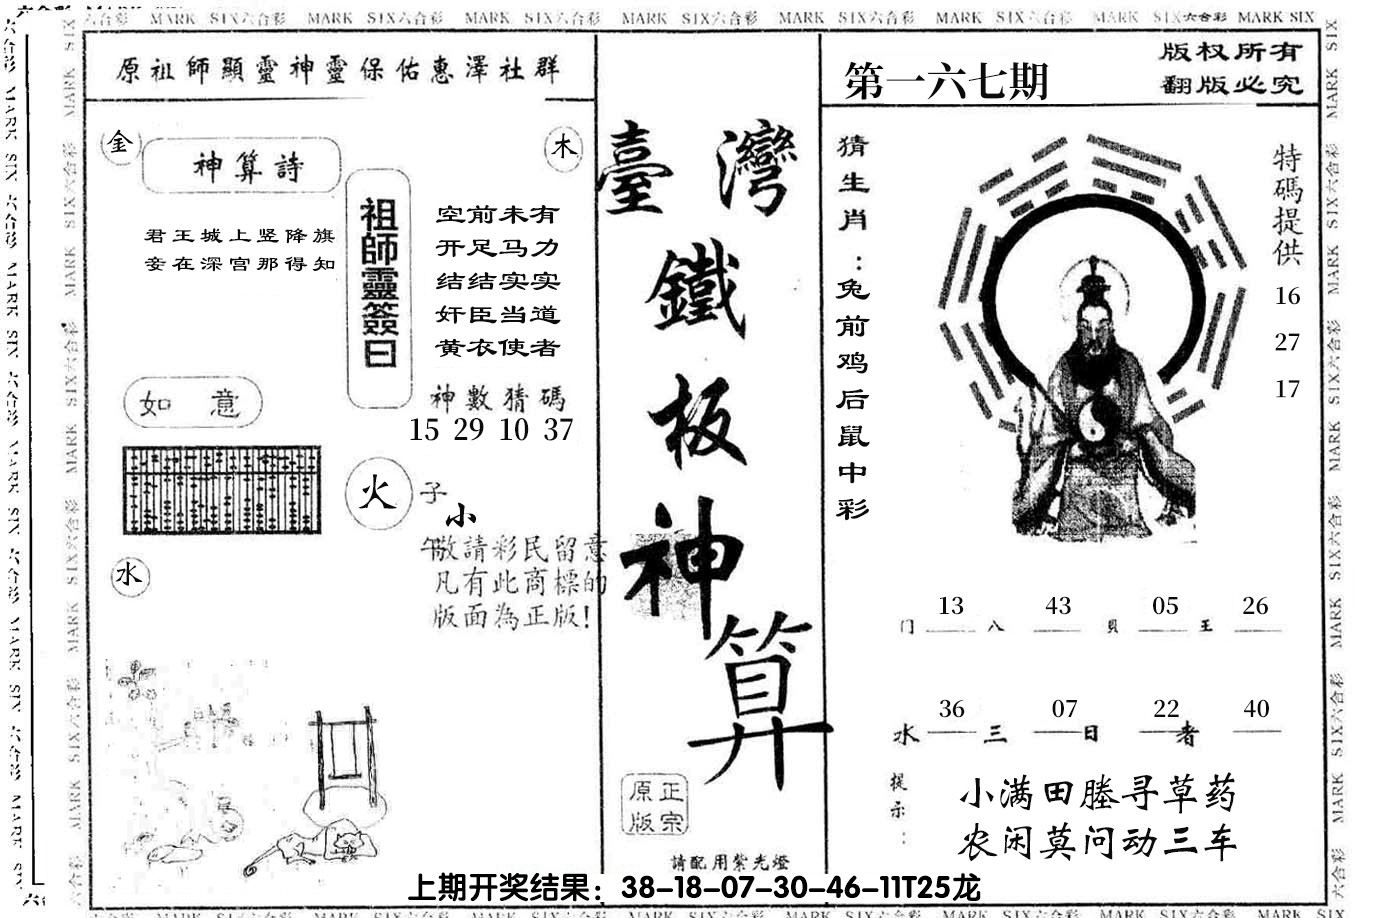 MARK SIX六合彩 MARK SIX六合彩 MARK SIX六合彩 MARK SIX六合彩 MARK SIX六合彩 MARK SIX六合彩 MARK SIX六合彩 MARK SIX
原祖師顯靈神靈保佑惠澤社群
金
神算詩
木
君王城上竖降旗
妾在深宫那得知
祖師靈簽曰
空前未有
开足马力
结结实实
奸臣当道
黄衣使者
如意
神數猜碼
15 29 10 37
火
子
小
午
敬請彩民留意
凡有此商標的
版面為正版!
水
臺灣
鐵
板
神
算
正宗
原版
請配用紫光燈
第一六七期
版权所有
翻版必究
猜生肖:兔前鸡后鼠中彩
特碼提供
16
27
17
13 43 05 26
门 八 贝 王
36 07 22 40
水 三 日 者
提示:
小满田塍寻草药
农闲莫问动三车
上期开奖结果：38-18-07-30-46-11T25龙